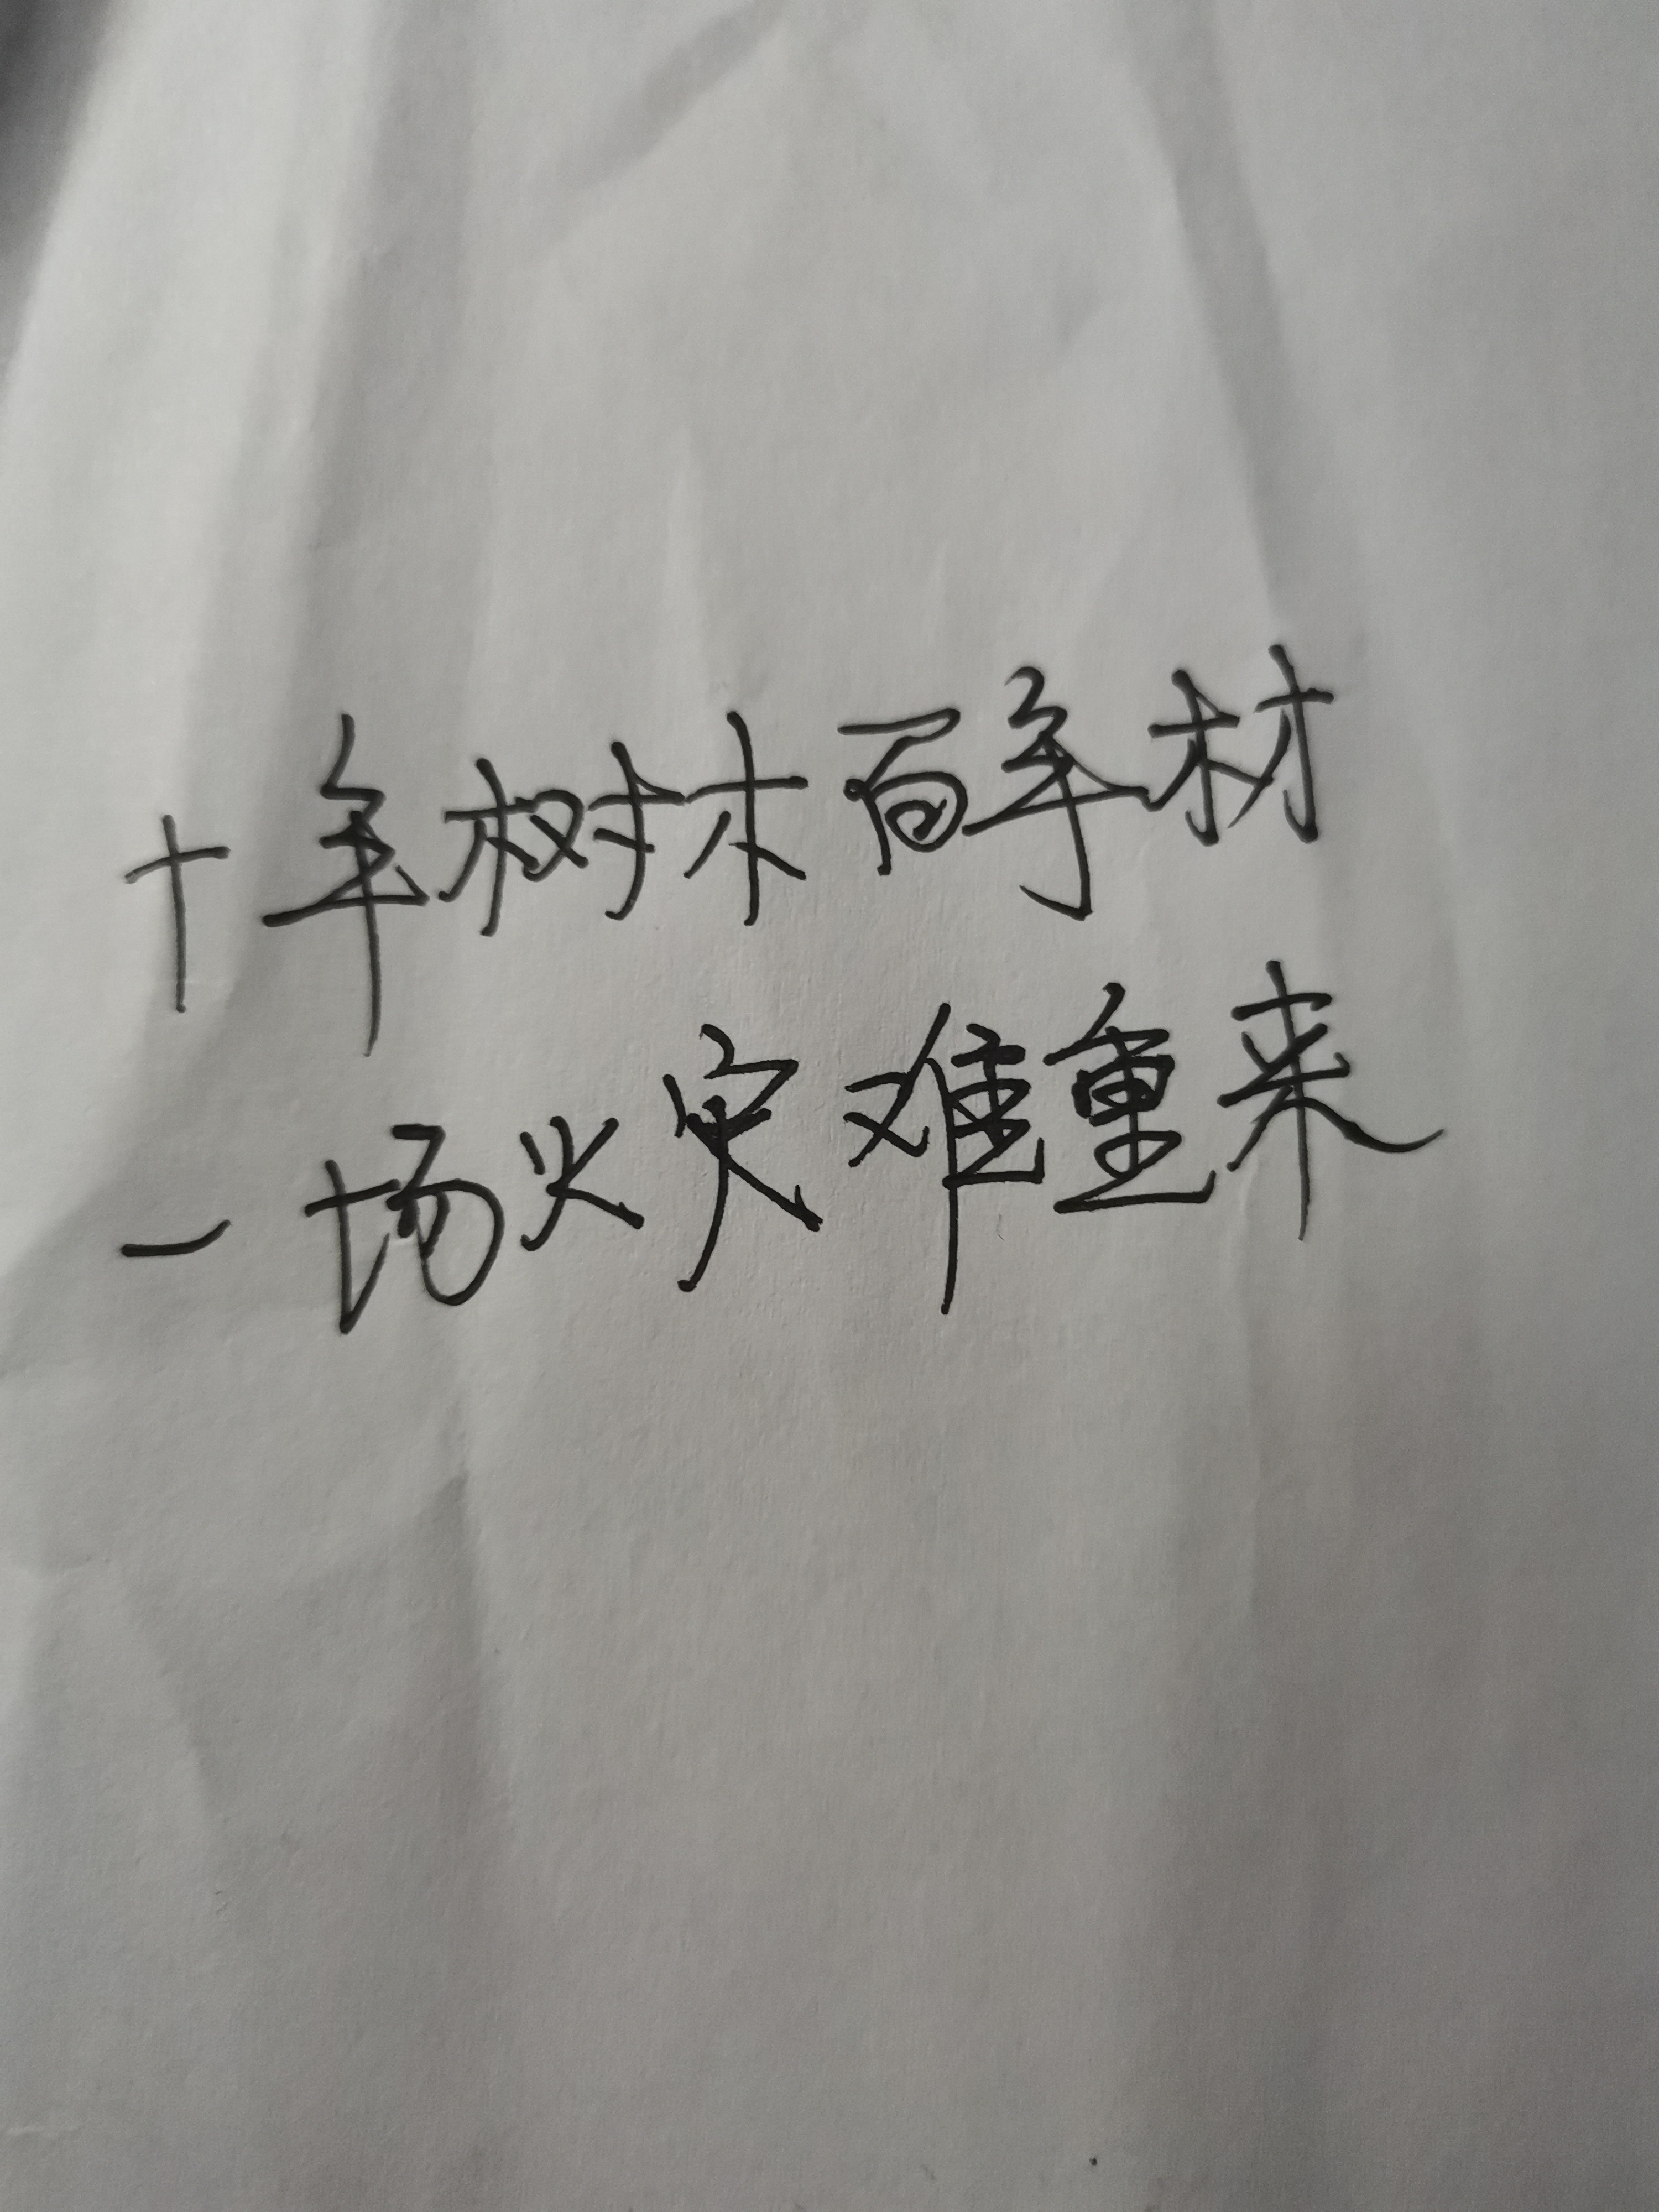 十年树木百年材
一场火灾难重来